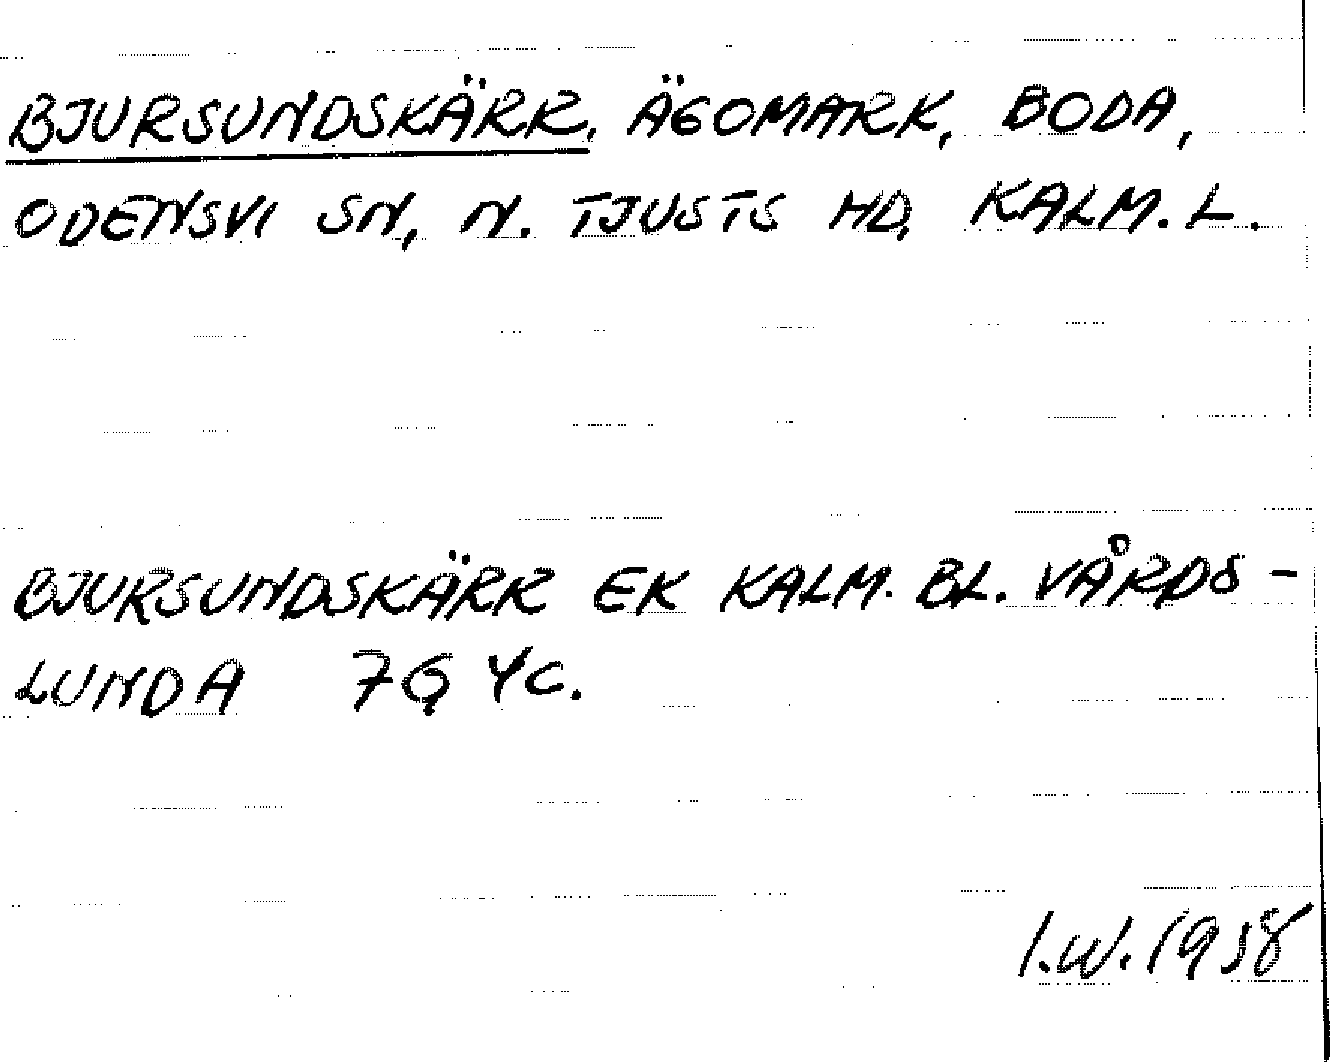 BJURSUNDSKÄRR, ÄGOMARK, BODA,
ODENSVI SN, N. TJUSTS HD, KALM. L.
BJURSUNDSKÄRR EK KALM. BL. VÅRDS-
LUNDA 7G 4C.
I.W. 1958